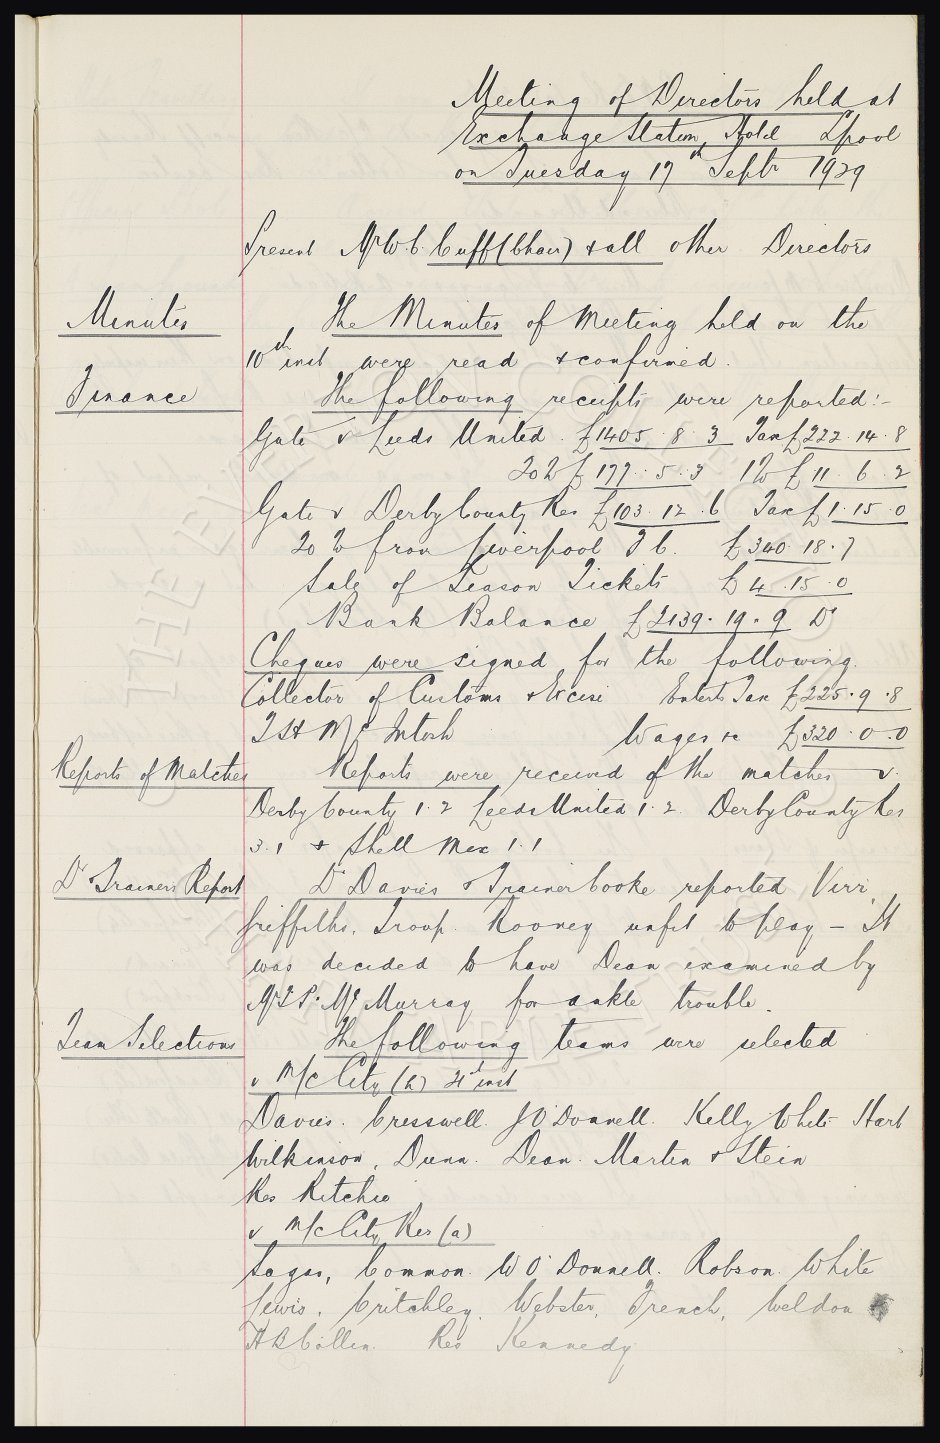 Meeting of Directors held at
Exchange Station, Hotel L'pool
on Tuesday 17th Septr 1929
Present Mr W.C. Cuff (Chair) & all other Directors
Minutes The Minutes of Meeting held on the
10th inst were read & confirmed.
Finance The following receipts were reported:-
Gate v Leeds United. £1405. 8. 3 Tax £222. 14. 8
20% £177. 5. 3 1% £11. 6. 2
Gate v Derby County Res £103. 12. 6 Tax £1. 15. 0
20% from Liverpool F C. £340. 18. 7
Sale of Season Tickets £4. 15. 0
Bank Balance £2139. 19. 9 Dr
Cheques were signed for the following.
Collector of Customs & Excise Enterts Tax £225. 9. 8
T H McIntosh Wages &c £320. 0. 0
Reports of Matches Reports were received of the matches v.
Derby County 1.2 Leeds United 1.2. Derby County Res
3.1 & Shell Mex 1.1
Dr & Trainers Report Dr Davies & Trainer Cooke reported Virr,
Griffiths, Troup. Rooney unfit to play — It
was decided to have Dean examined by
Mr T P. McMurray for ankle trouble.
Team Selections The following teams were selected
v M/c City (h) 21st inst
Davies. Cresswell. J O'Donnell. Kelly White Hart
Wilkinson, Dunn. Dean. Martin & Stein
Res Ritchie
v M/c City Res (a)
Sagar, Common. W O'Donnell. Robson. White
Lewis, Critchley, Webster, French, Weldon
& Kennedy